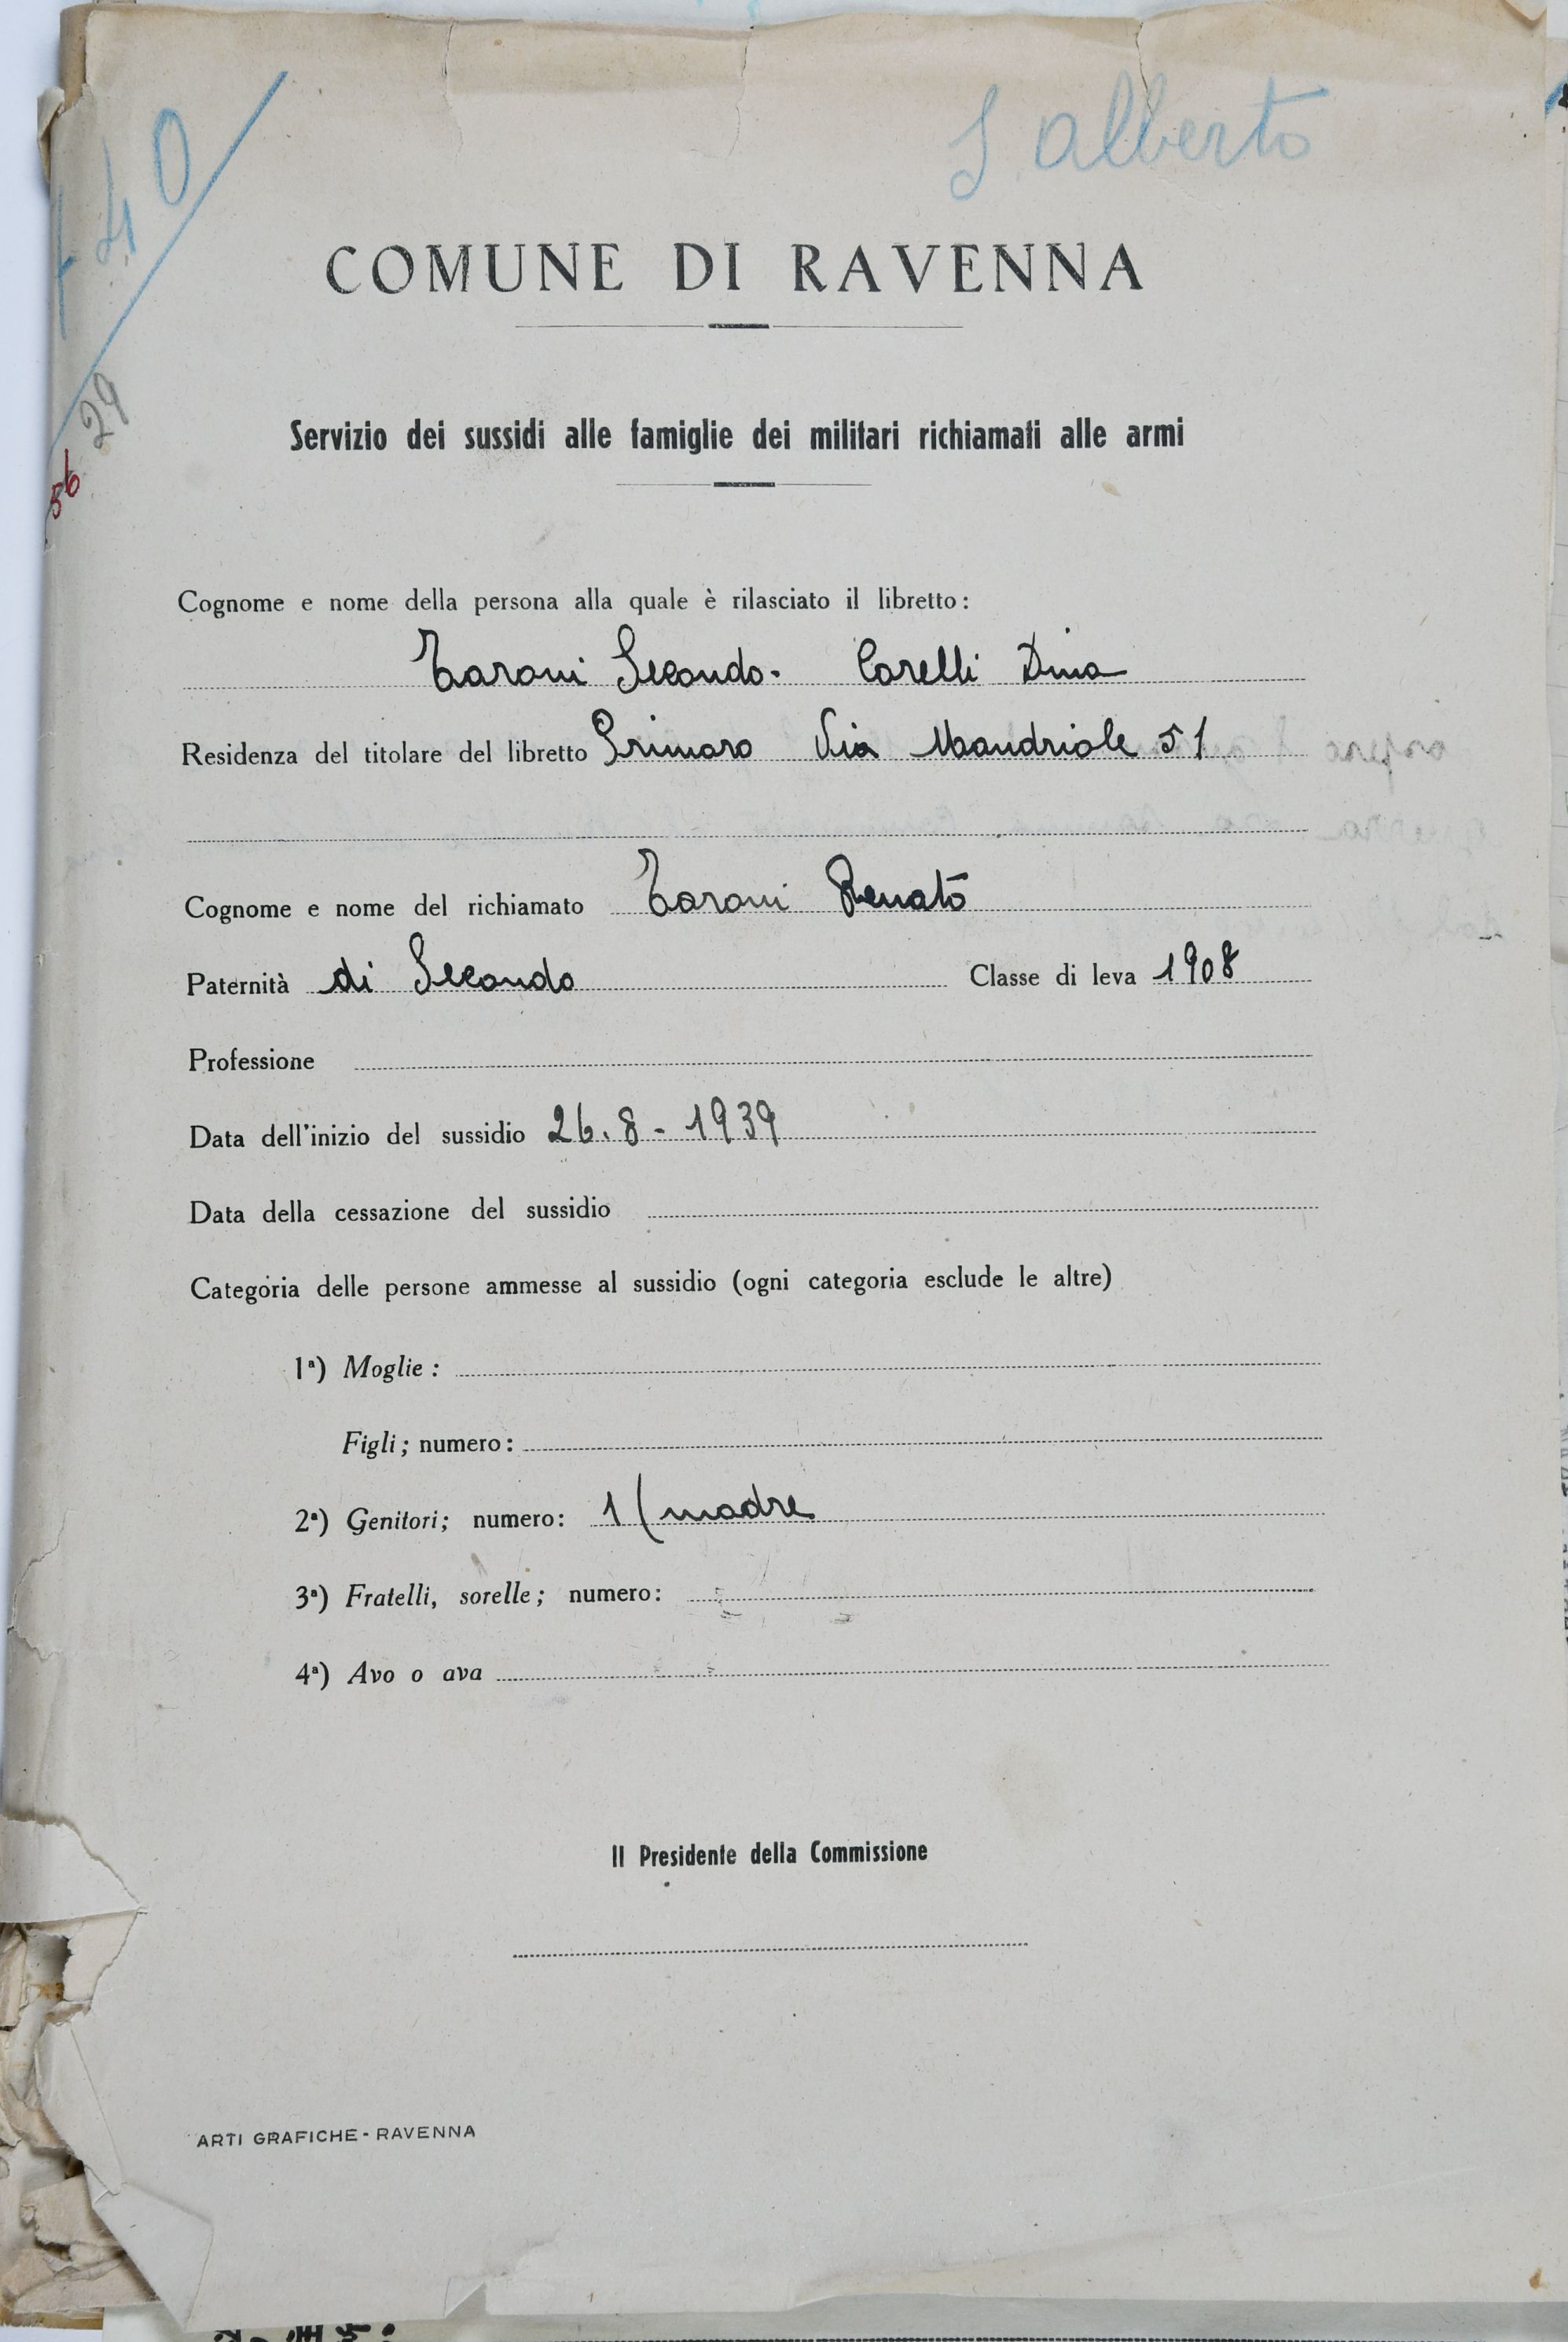 S. Alberto
40
29
56
COMUNE DI RAVENNA
Servizio dei sussidi alle famiglie dei militari richiamati alle armi
Cognome e nome della persona alla quale è rilasciato il libretto:
Taroni Secondo - Corelli Dina
Residenza del titolare del libretto Primaro Via Mandriole 51
Cognome e nome del richiamato Taroni Renato
Paternità di Secondo Classe di leva 1908
Professione
Data dell'inizio del sussidio 26.8-1939
Data della cessazione del sussidio
Categoria delle persone ammesse al sussidio (ogni categoria esclude le altre)
1ª) Moglie:
Figli; numero:
2ª) Genitori; numero: 1 (madre
3ª) Fratelli, sorelle; numero:
4ª) Avo o ava
Il Presidente della Commissione
ARTI GRAFICHE - RAVENNA